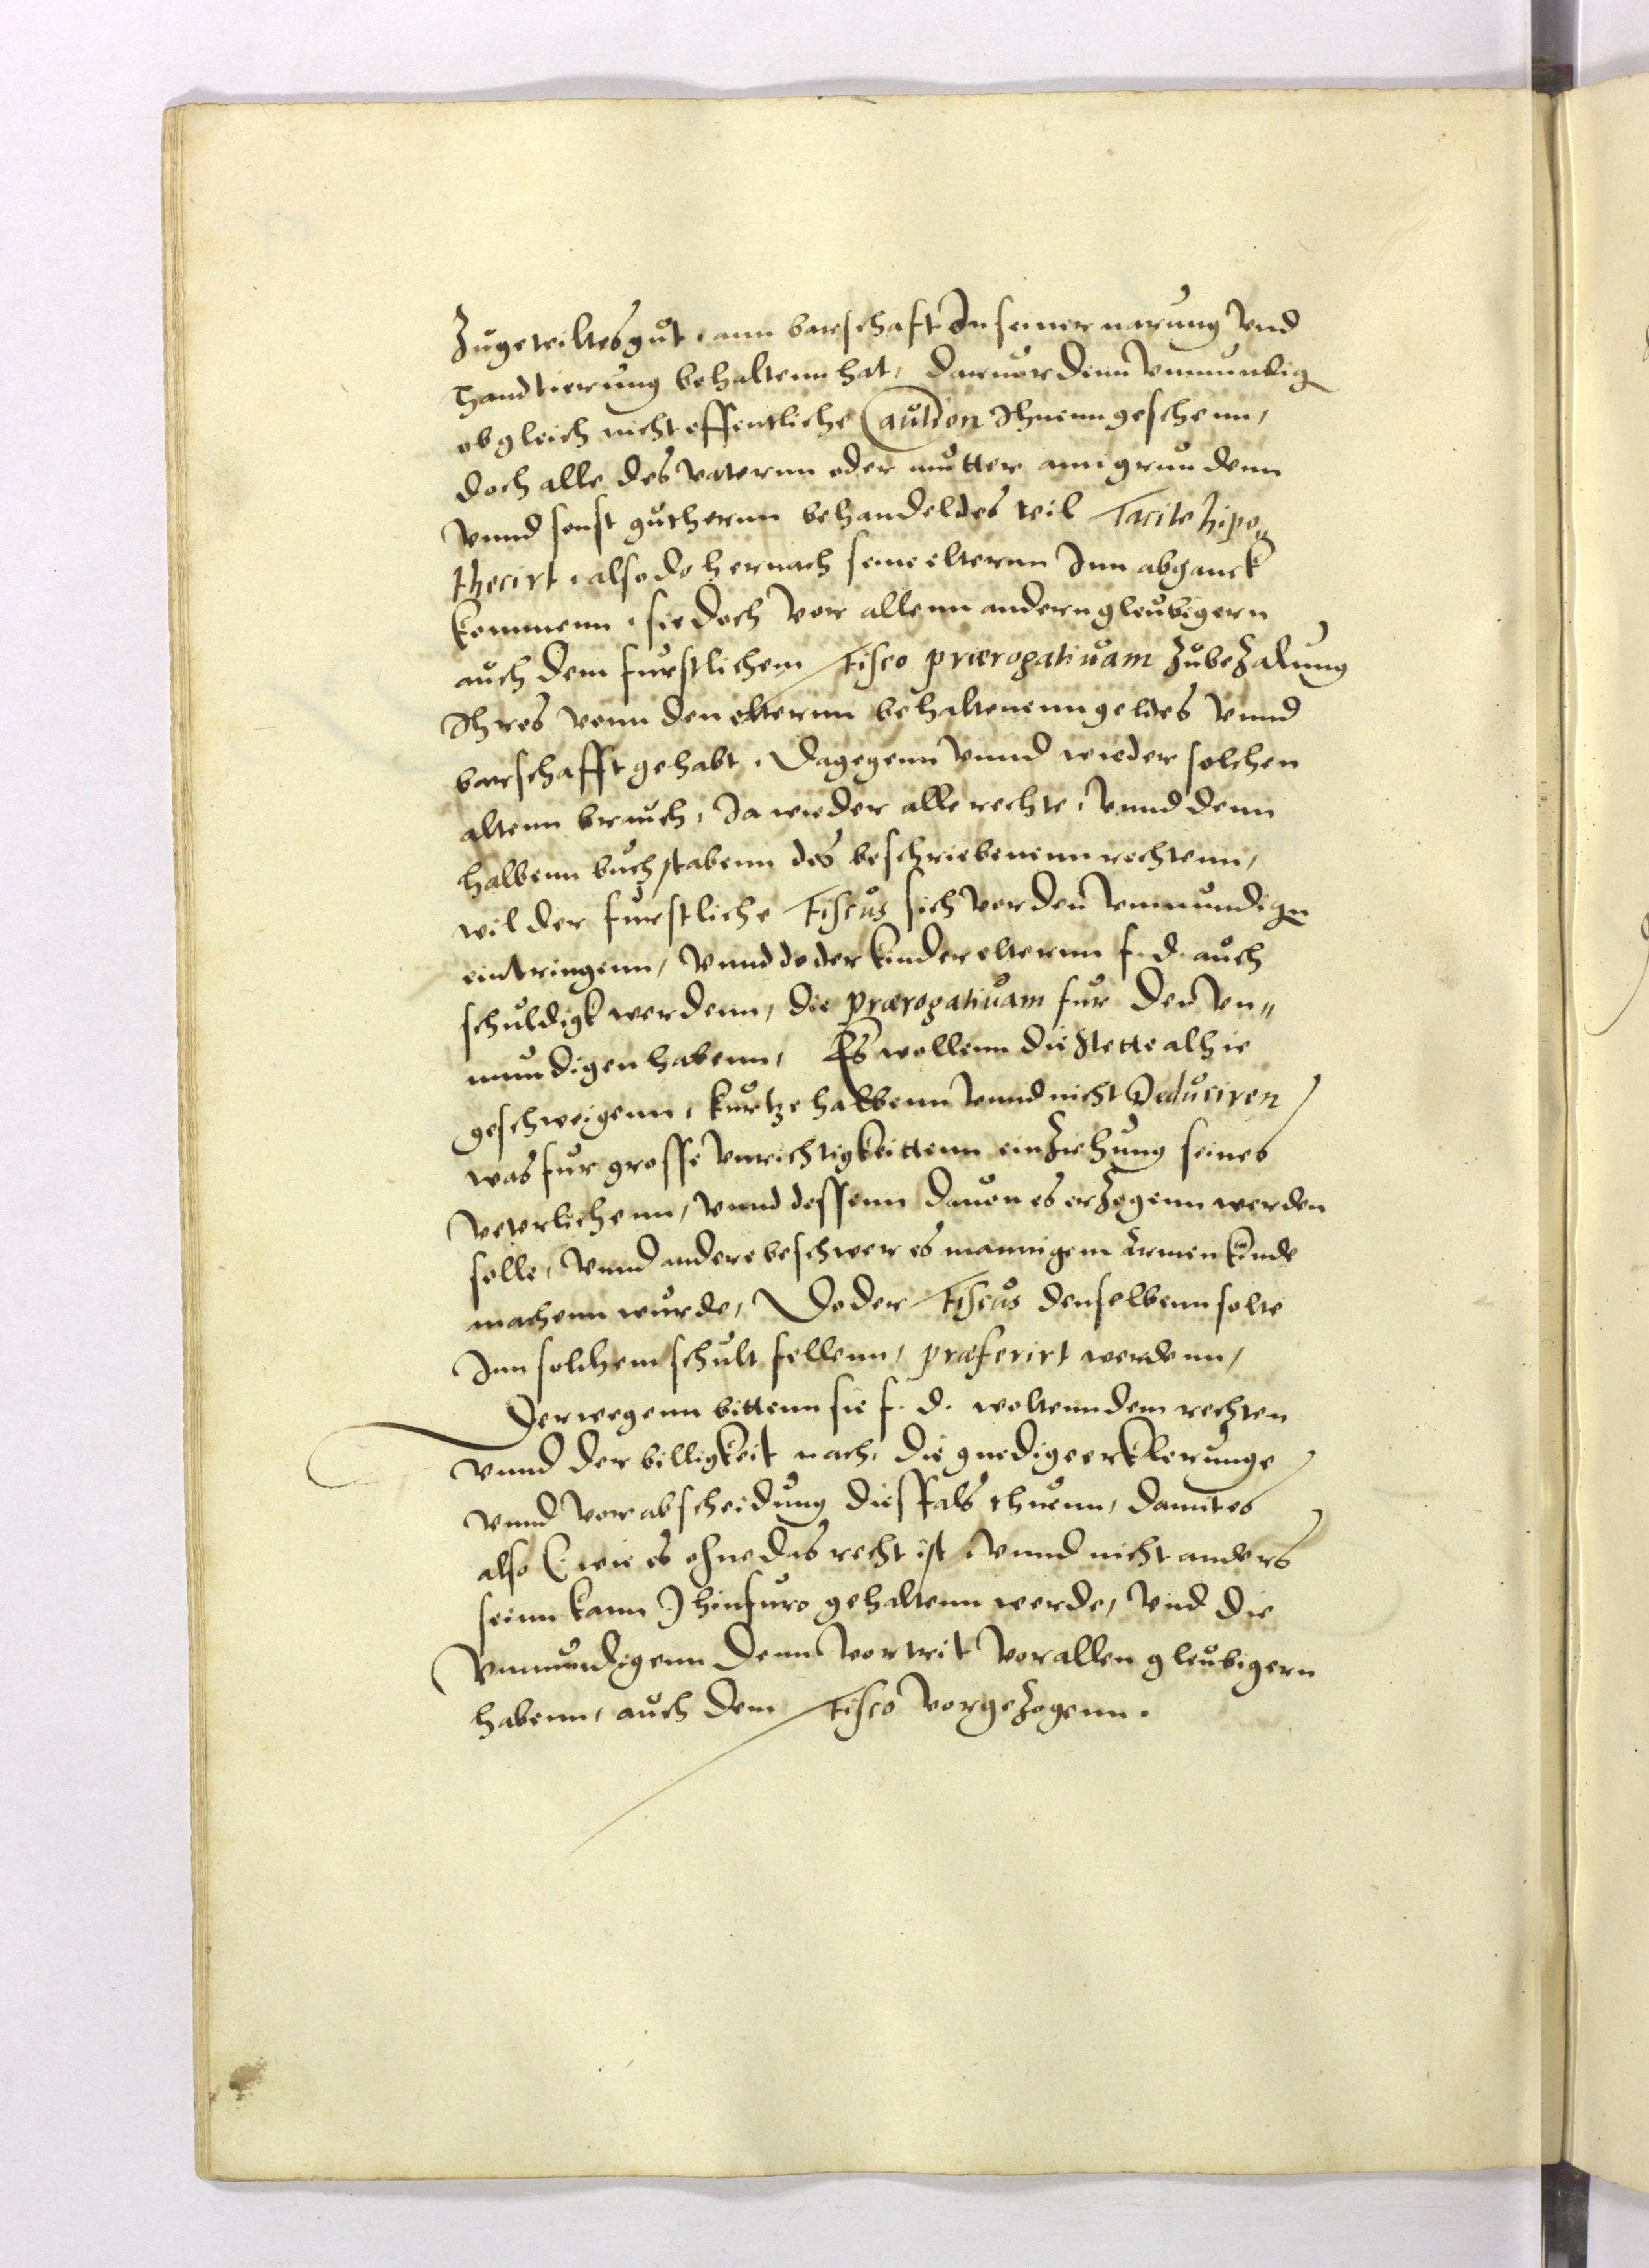 Zugeteiltes gut, ann barschaft In seiner narung vnd
Handtierung behaltenn hat, daruor denn vnmundig
ob gleich nicht offentliche Caution Ihnenn geschenn,
doch alle des vaternn oder mutter ann grundenn
vnnd sonst guthernn behandeldes teil Tacite hipo„
thecirt, also do hernach seine elternn Inn abganck
kommenn, sie doch vor allenn andern gleubigern
auch dem furstlichem Fisco prærogatiuam zubezalung
Ihres vonn den elternn behaltenenn geldes vnnd
barschafft gehabt, Dagegenn vnnd wieder solchen
altenn brauch, Ja wieder alle rechte, vnnd denn
halbenn buchstabenn des beschriebenenn rechtenn,
wil der furstliche Fiscus sich vor den vnmundign
eintringenn, vnnd do der kinder elternn f. d. auch
schuldigk werdenn, die prærogatiuam fur den vn„
mundigen habenn, Es wollenn die Stette alhie
geschweigenn, kurtze halbenn vnnd nicht Deduciren
was fur grosse vnrichtigkeittenn einziehung seines
veterlichenn, vnnd dessenn dauon es erzogenn werden
solle, vnnd andere beschwer es mannigem Armen kinde
machenn wurde, Do der Fiscus denselbenn solte
Inn solchem schult fellenn, præferirt werdenn,
Derwegenn bittenn sie f. d. woltenn dem rechten
vnnd der billigkeit nach, die gnedige erklerunge
vnnd vorabscheidung diesfals thuenn, damit es
also (: wie es ohne das recht ist, vnnd nicht anders
seinn kann :) hinfuro gehaltenn werde, vnd die
vnmundigenn denn vortrit vor allen gleubigern
habenn, auch dem Fisco vorgezogenn.